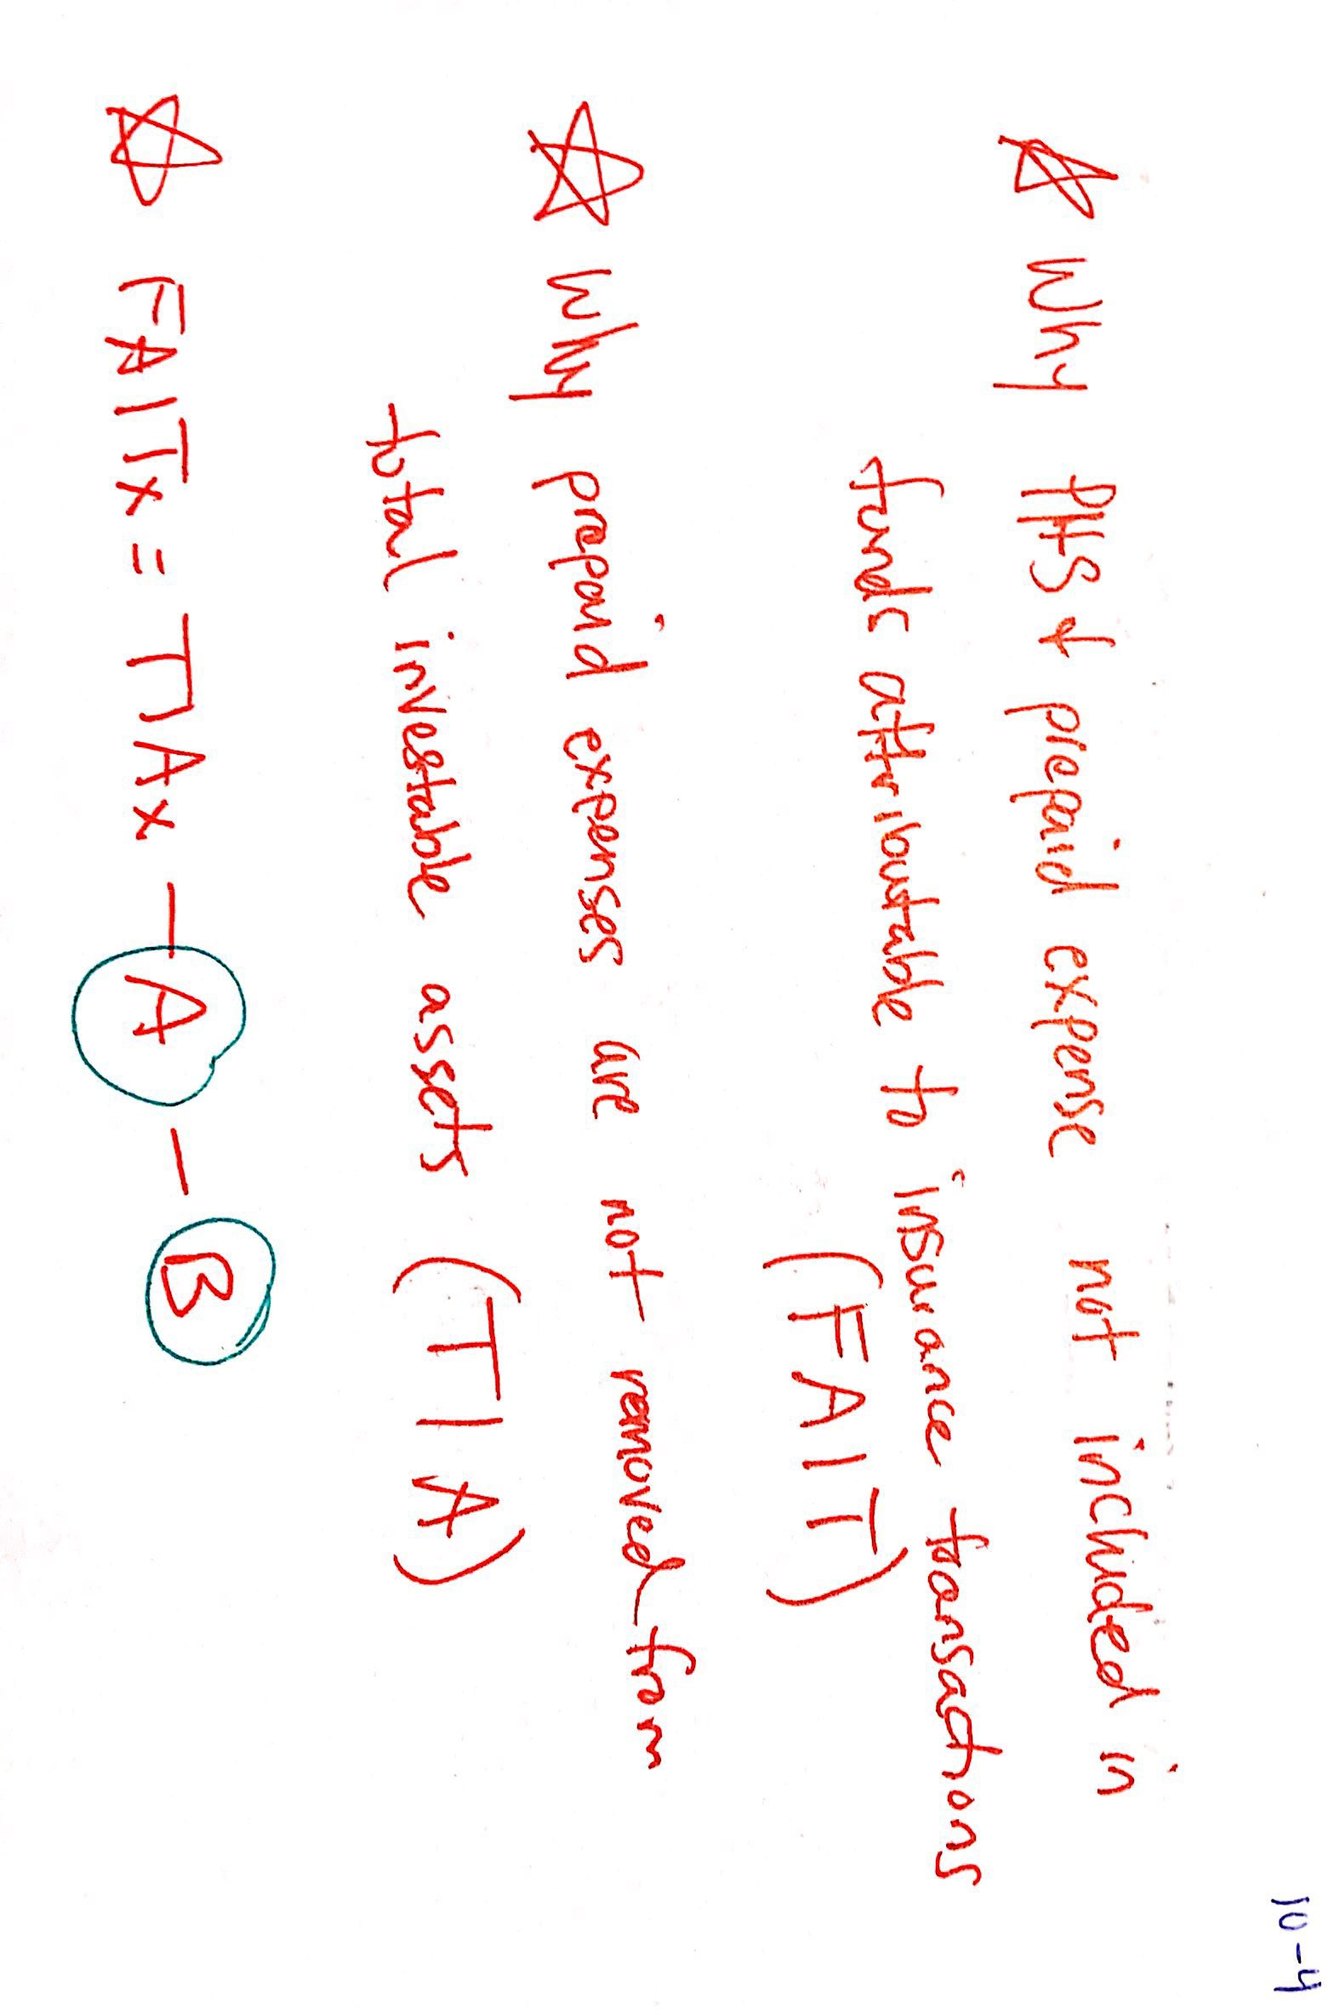 10-4
Why PHS & prepaid expense not included in
funds attributable to insurance transactions
(FAIT)
Why prepaid expenses are not removed from
total investable assets (TIA)
FAITx = TIAx - A - B